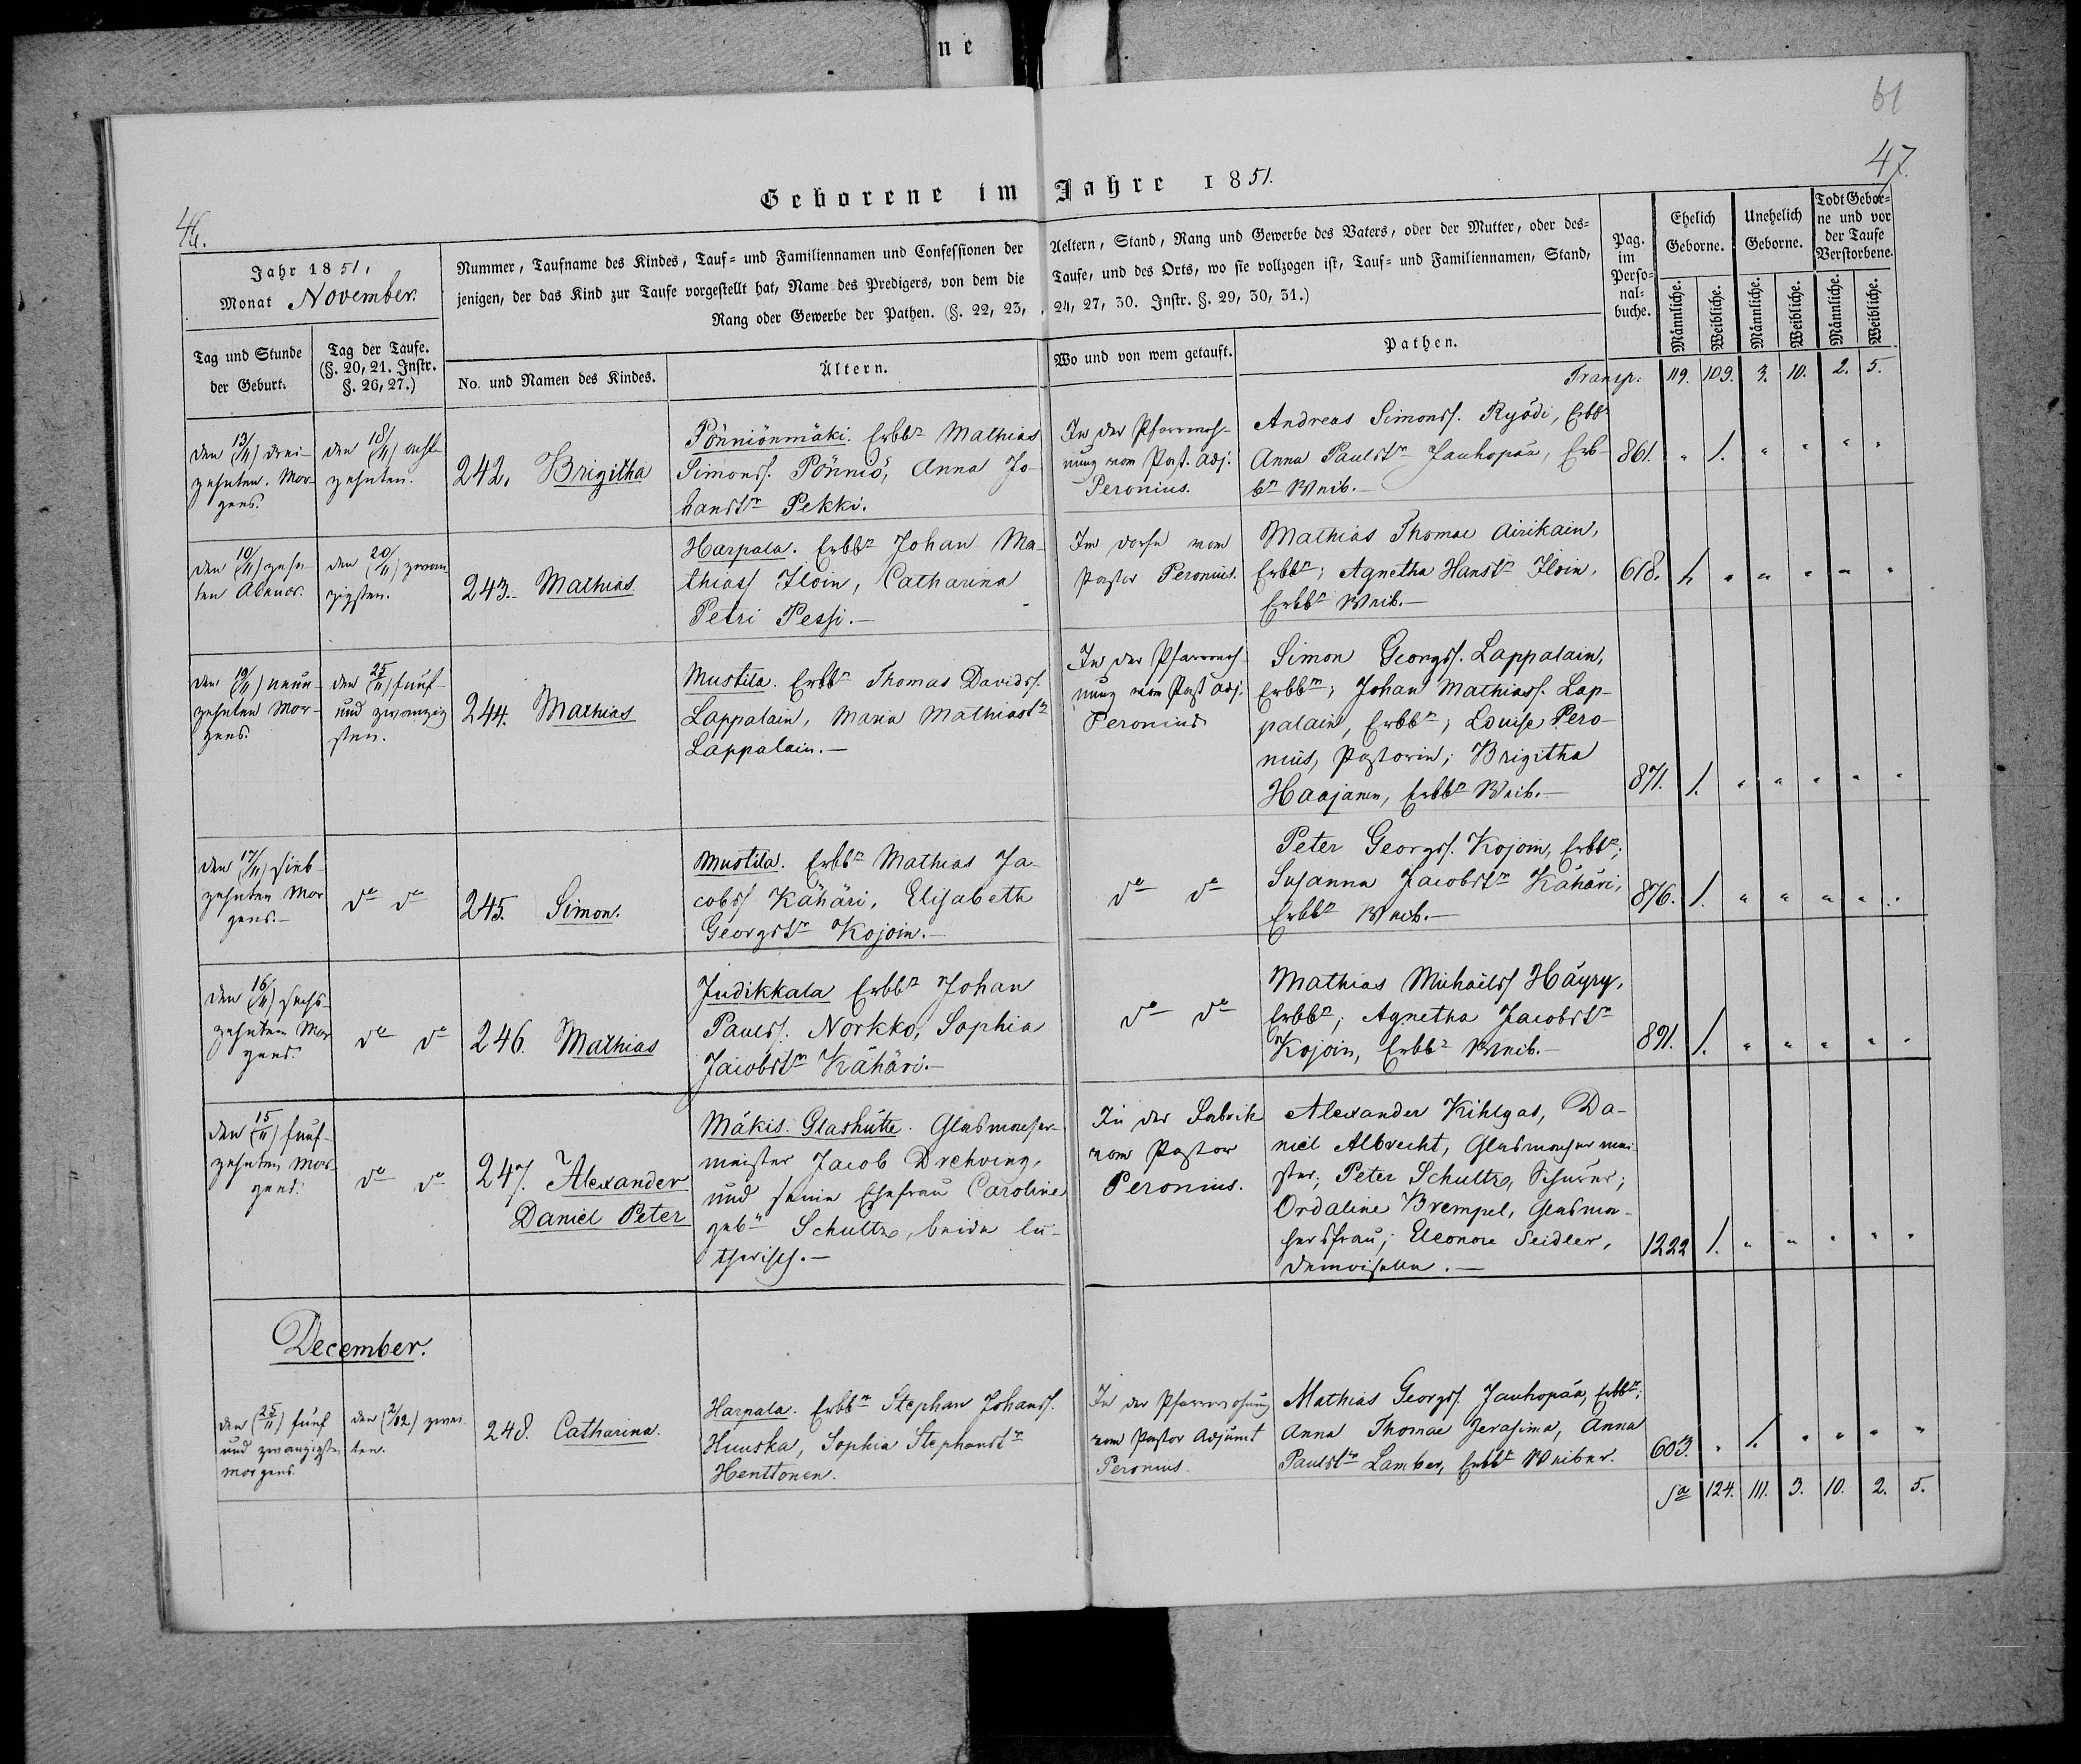 ne
61
47.
46.
Geborene im Jahre 1851.
Jahr 1851,
Monat November.
Nummer, Taufname des Kindes, Tauf- und Familiennamen und Confessionen der Aeltern, Stand, Rang und Gewerbe des Vaters, oder der Mutter, oder des-
jenigen, der das Kind zur Taufe vorgestellt hat, Name des Predigers, von dem die Taufe, und des Orts, wo sie vollzogen ist, Tauf- und Familiennamen, Stand,
Rang oder Gewerbe der Pathen. (§. 22, 23, 24, 27, 30. Instr. §. 29, 30, 31.)
Pag.
im
Perso-
nal-
buche.
Ehelich
Geborne.
Unehelich
Geborne.
Todt Gebor-
ne und vor
der Taufe
Verstorbene.
Männliche.
Weibliche.
Männliche.
Weibliche.
Männliche.
Weibliche.
Tag und Stunde
der Geburt.
Tag der Taufe.
(§. 20, 21. Instr.
§. 26, 27.)
No. und Namen des Kindes.
Ältern.
Wo und von wem getauft.
Pathen.
Transp. 119. 109. 3. 10. 2. 5.
den (13/11) drei-
zehnten. Mor-
gens.
den (18/11) acht-
zehnten.
242. Brigitha
Pönniönmäki. Erbbr Mathias
Simonss. Pönniö, Anna Jo-
hanstr Pekki.
In der Pfarrwoh-
nung vom Past. Adj.
Peronius.
Andreas Simonss. Ryödi, Erbbr
Anna Paulstr Jauhopää, Erb-
br Weib.-
861. " 1. " " " "
den (10/11) zehn-
ten Abends.
den (20/11) zwan-
zigsten.
243. Mathias.
Harpala. Erbbr Johan Ma-
thiass Iloin, Catharina
Petri Pessi.-
Im Dorfe vom
Pastor Peronius.
Mathias Thomae Airikain,
Erbbr; Agnetha Hanstr Iloin,
Erbbr Weib.-
618. 1. " " " " "
den (19/11) neun-
zehnten Mor-
gens.
den (25/11) fünf-
und zwanzig
sten.
244. Mathias
Mustila. Erbbr Thomas Davidss.
Lappalain, Maria Mathiastr
Lappalain.-
In der Pfarrwoh-
nung vom Past Adj.
Peronius
Simon Georgss. Lappalain,
Erbbr; Johan Mathiass. Lap-
palain, Erbbr; Louise Pero-
nius, Pastorin; Brigitha
Haajanen, Erbbr Weib.-
871. 1. " " " " "
den (17/11) sieb-
zehnten Mor
gens.-
do do
245. Simon.
Mustila. Erbbr Mathias Ja-
cobss Kähäri, Elisabeth
Georgstr Kojoin.-
do do
Peter Georgss. Kojoin, Erbbr;
Susanna Jacobstr Kähäri,
Erbbr Weib.-
876. 1. " " " " "
den (16/11) sechs-
zehnten Mor
gens.
do do
246. Mathias
Judikkala Erbbr Johan
Paulss. Norkko, Sophia
Jacobstr Kähäri.-
do do
Mathias Michaelss Häyry,
Erbbr; Agnetha Jacobstr
Kojoin, Erbbr Weib.-
891. 1. " " " " "
den (15/11) fünf-
zehnten Mor-
gens.
do do
247. Alexander
Daniel Peter
Mäkis. Glashütte. Glasmacher-
meister Jacob Drehving,
und seine Ehefrau Caroline
gebn Schultz, beide lu-
therisch.-
In der Fabrik
vom Pastor
Peronius.
Alexander Kihlgas, Da-
niel Albrecht, Glasmacher mei-
ster; Peter Schultz, Schürer;
Ordaline Brempel, Glasma-
chersfrau; Eleonore Seidler,
Demoiselle.-
1222 1. " " " " "
December.
den (25/11) fünf
und zwanzigsten
Morgens.
den (2/12) zwei-
ten.
248. Catharina.
Harpala. Erbbr Stephan Johanss.
Huuska, Sophia Stephanstr
Henttonen.
In der Pfarrwohnung
vom Pastor Adjunct
Peronius.
Mathias Georgss. Jauhopää, Erbbr;
Anna Thomae Jerasima, Anna
Paulstr Lamber, Erbbr Weiber.
603. " 1. " " " "
Sa 124. 111. 3. 10. 2. 5.